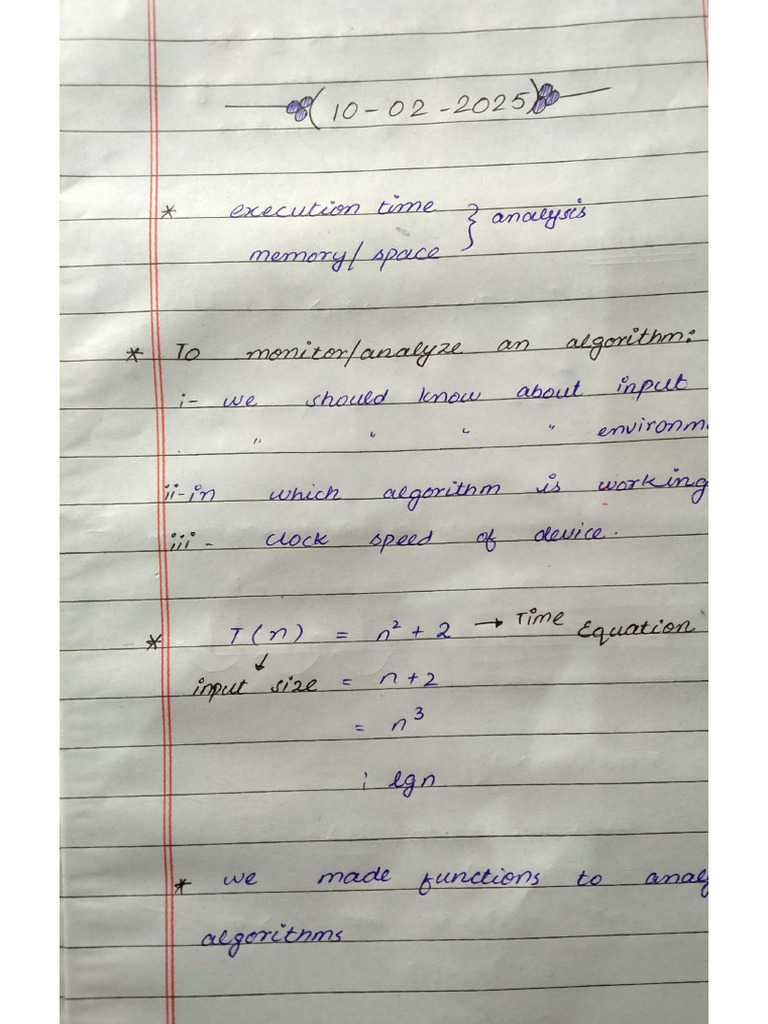 (10-02-2025)
* execution time } analysis
memory/ space
* To monitor/analyze an algorithm:
i- we should know about input
" " " " environm
ii-in which algorithm is working
iii- clock speed of device.
* T(n) = n² + 2 → Time Equation
↓
input size = n+2
= n³
; lgn
* we made functions to analy
algorithms